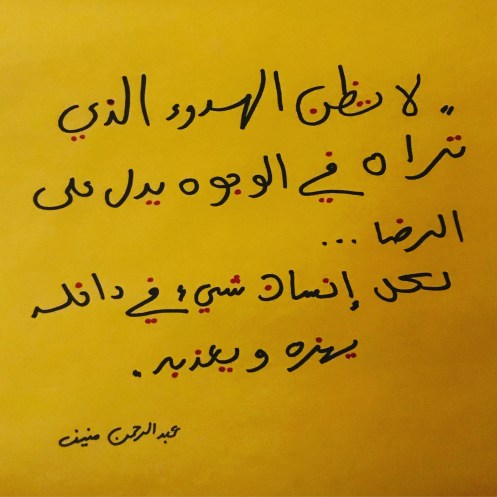 " لا تظن الهدوء الذي
تراه في الوجوه يدل على
الرضا ...
لكل إنسان شيء في داخله
يهزه و يعذبه .
عبدالرحمن منيف